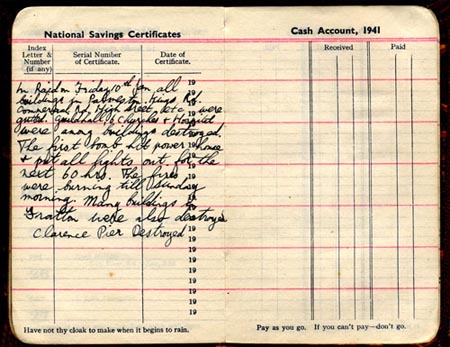 National Savings Certificates
Index Letter & Number (if any)
Serial Number of Certificate.
Date of Certificate.
In Raid on Friday 10th Jan all
buildings in Palmerston, Kings Rd,
Commercial Rd, High Street, etc were
gutted. Guildhall 6 Churches & Hospital
were among buildings destroyed.
The first bomb hit power house
& put all lights out for the
next 60 hrs. The fires
were burning till Sunday
morning. Many buildings in
Fratton were also destroyed
Clarence Pier Destroyed
19
19
19
19
19
19
19
19
19
19
19
19
19
19
19
19
19
Have not thy cloak to make when it begins to rain.
Cash Account, 1941
Received
Paid
Pay as you go. If you can't pay—don't go.